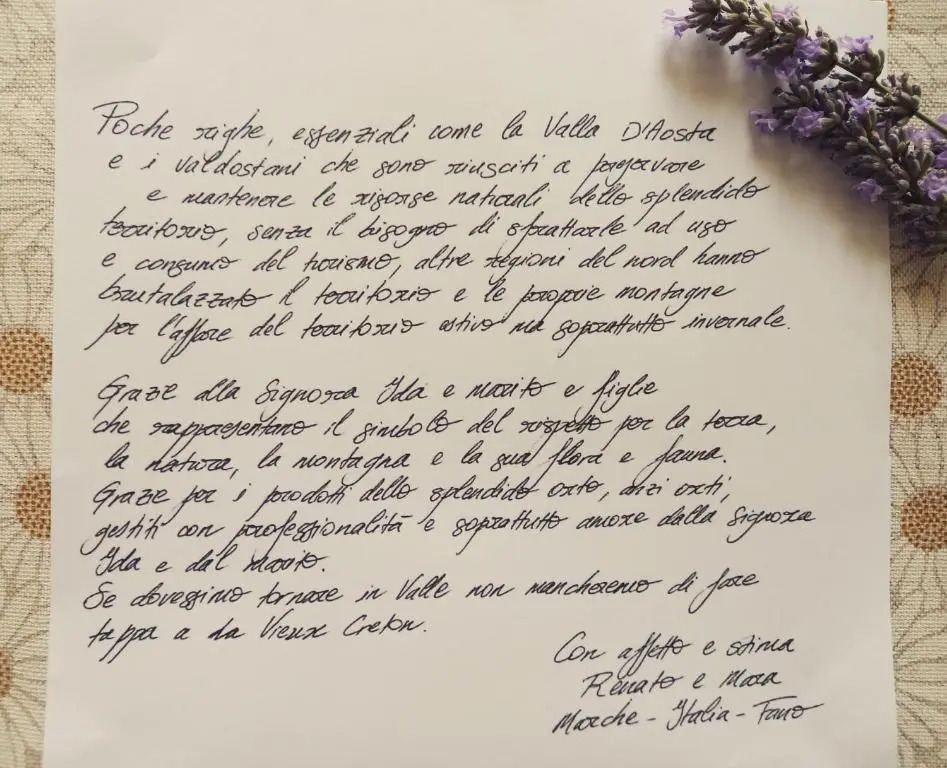 Poche righe, essenziali come la Valla D'Aosta
e i valdostani che sono riusciti a preservare
e mantenere le risorse naturali dello splendido
territorio, senza il bisogno di sfruttarle ad uso
e consumo del turismo, altre regioni del nord hanno
brutalazzato il territorio e le proprie montagne
per l'affare del territorio estivo ma soprattutto invernale.
Grazie alla Signora Ida e marito e figlie
che rappresentano il simbolo del rispetto per la terra,
la natura, la montagna e la sua flora e fauna.
Grazie per i prodotti dello splendido orto, anzi orti,
gestiti con professionalità e soprattutto amore dalla Signora
Ida e dal marito.
Se dovessimo tornare in Valle non mancheremo di fare
tappa a da Vieux Creton.
Con affetto e stima
Renato e Mara
Marche - Italia - Fano